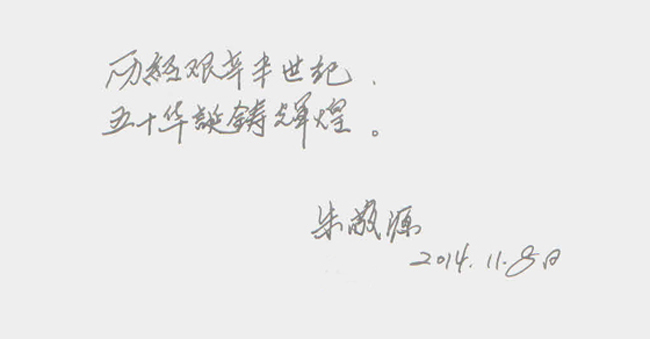 历经艰辛半世纪,
五十华诞铸辉煌。
朱敬源
2014.11.8日